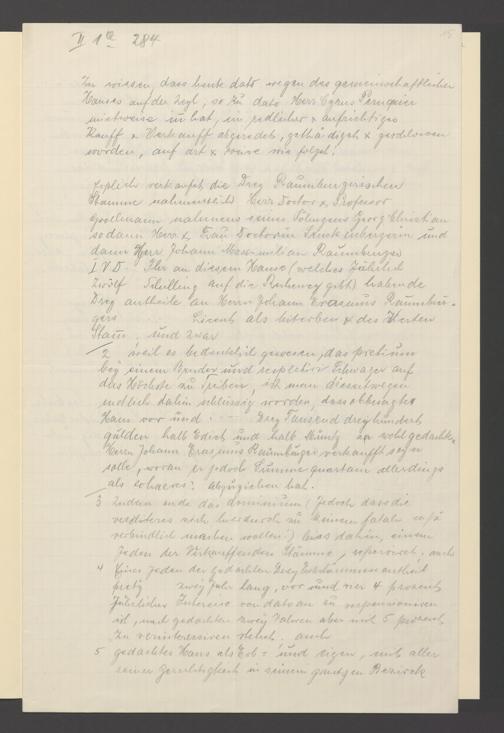 II 1 284
Zu wissen, dass heute dato wegen des gemeinschaftlichen
Hauses auf der Zeyl, so zu dato Herr Cyrus
mietweise in hat, ein redlicher & aufrichtiger
Kauff & Verkauff abgeredet, gethädiget & geschlossen
worden, auf art & weise wie folgt.
verkaufet die Drey Raumburgerischen
Stämme nahmentlich Herr Doctor & Professor
nahmens seines Georg Christian
sodann Herr & Frau Doctorin und
dann Herr Johann Maximilian Raumburger
I V D. Ihr an diesem Hause (welches Jährlich
Zwölf Schilling auf die gibt) habende
Drey antheile an Herrn Johann Erasmus Raumbur-
gers Licent. als miterben & des Vierten
Stam. und zwar
2 weil es bedenklich gewesen, das pretium
bey einem Bruder und respective Schwager auf
das Höchste zu treiben, ist man dieserwegen
endlich dahin schlüssig worden, dass obbesagtes
Haus vor und Drey Tausend dreyhundert
gulden halb Edict und halb Müntz an wohlgedachten
Herrn Johann Erasmus Raumburger verkaufft seyn
solle, woran er jedoch Summa quartam allerdings
als abzuziehen hat.
3 Zudem ende das dominium (jedoch dass die
venditores sich hierdurch zu keinem fatale
verbindlich machen wollen) bis dahin, einem
Jeden der Verkauffenden Stämme, auch
4 Einer Jeden der gedachten Drey antheil
zwey Jahr lang, vor und mit 4 prozent
Jährlicher Interesse von dato an zu
ist, nach gedachten zwey Jahren aber mit 5 prozent
zu verinteressiren stehet. auch
5 gedachtes Haus als Erb= und eigen, mit aller
seiner Gerechtigkeit in seinem gantzen Bezirck